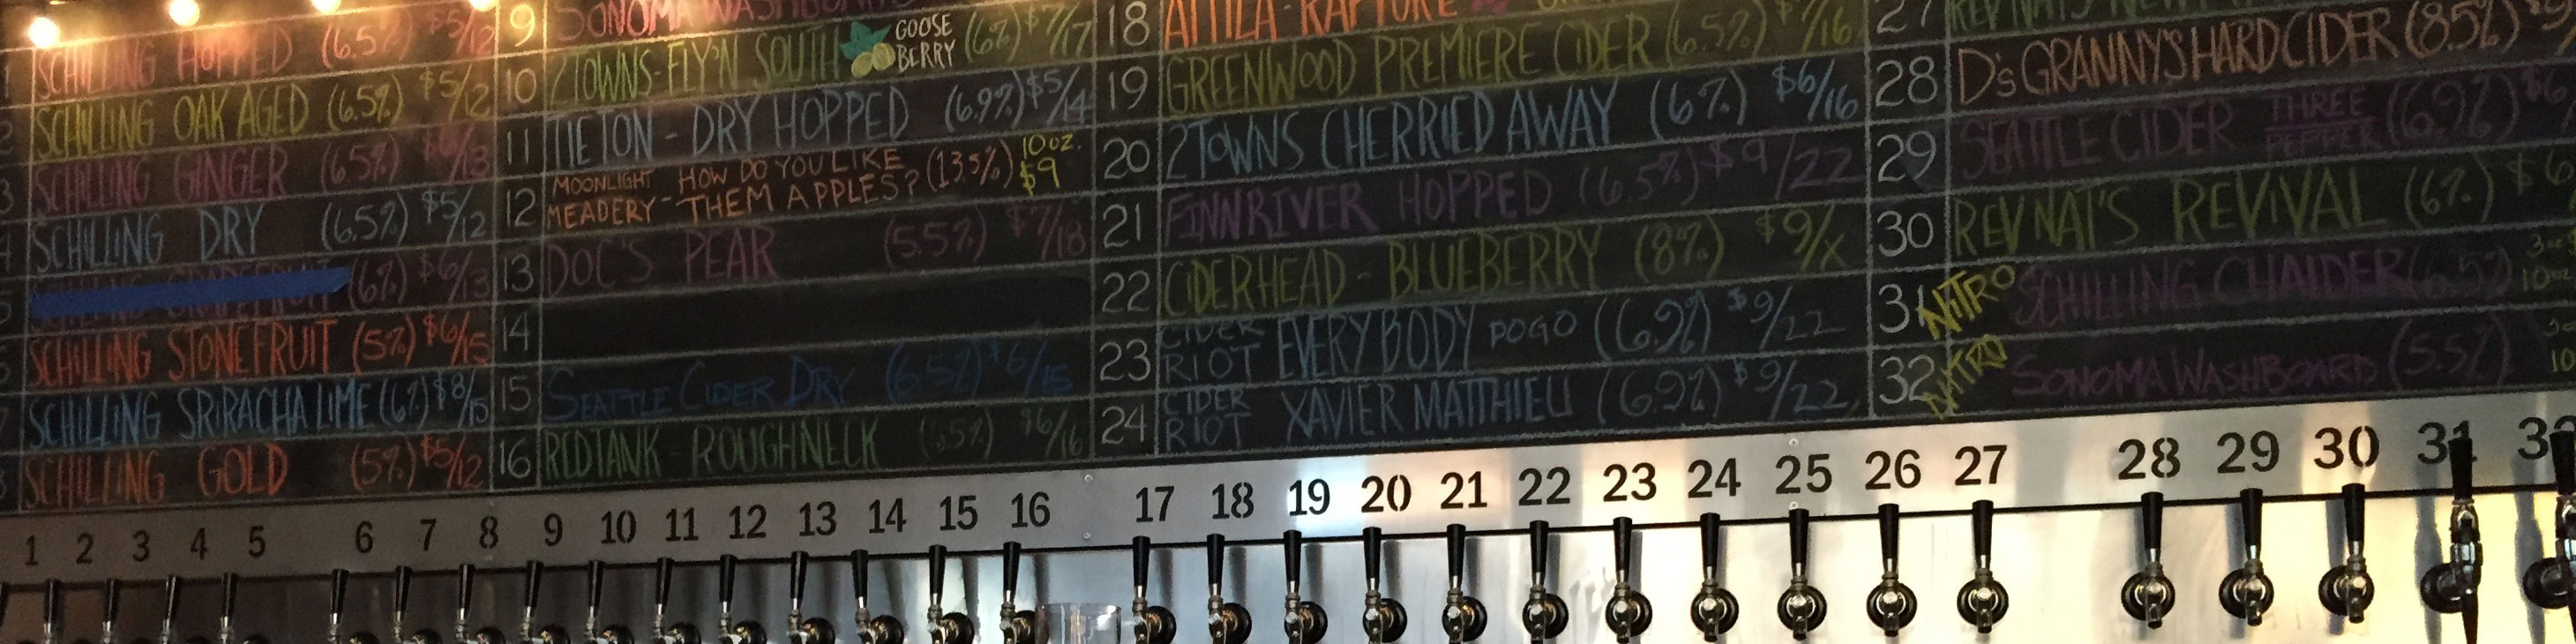 1 SCHILLING HOPPED (6.5%) $5/12
2 SCHILLING OAK AGED (6.5%) $5/12
3 SCHILLING GINGER (6.5%) /13
4 SCHILLING DRY (6.5%) $5/12
5 (6%) $6/13
SCHILLING STONEFRUIT (5%) $6/15
SCHILLING SRIRACHA LIME (6%) $8/15
SCHILLING GOLD (5%) $5/12
9 SONOMA WASHBOARD
10 2TOWNS-FLY'N SOUTH GOOSE BERRY (6%) $7/17
11 TIETON - DRY HOPPED (6.9%) $5/14
12 MOONLIGHT MEADERY - HOW DO YOU LIKE THEM APPLES? (13.5%) 10oz. $9
13 DOC'S PEAR (5.5%) $7/18
14
15 SEATTLE CIDER DRY (6.5%) $6/15
16 REDTANK - ROUGHNECK (6.5%) $6/16
18 ATTILA - RAPTURE
19 GREENWOOD PREMIERE CIDER (6.5%) $7/16
20 2TOWNS CHERRIED AWAY (6%) $6/16
21 FINNRIVER HOPPED (6.5%) $9/22
22 CIDERHEAD - BLUEBERRY (8%) $9/X
23 CIDER RIOT EVERYBODY POGO (6.9%) $9/22
24 CIDER RIOT XAVIER MATTHIEU (6.9%) $9/22
27 REV NAT'S
28 D's GRANNY'S HARD CIDER (8.5%)
29 SEATTLE CIDER THREE PEPPER (6.9%) $6
30 REV NAT'S REVIVAL (6%) $6
31 NITRO SCHILLING CHAIDER (6.5%)
32 NITRO SONOMA WASHBOARD (5.5%)
1 2 3 4 5 6 7 8 9 10 11 12 13 14 15 16 17 18 19 20 21 22 23 24 25 26 27 28 29 30 31 32